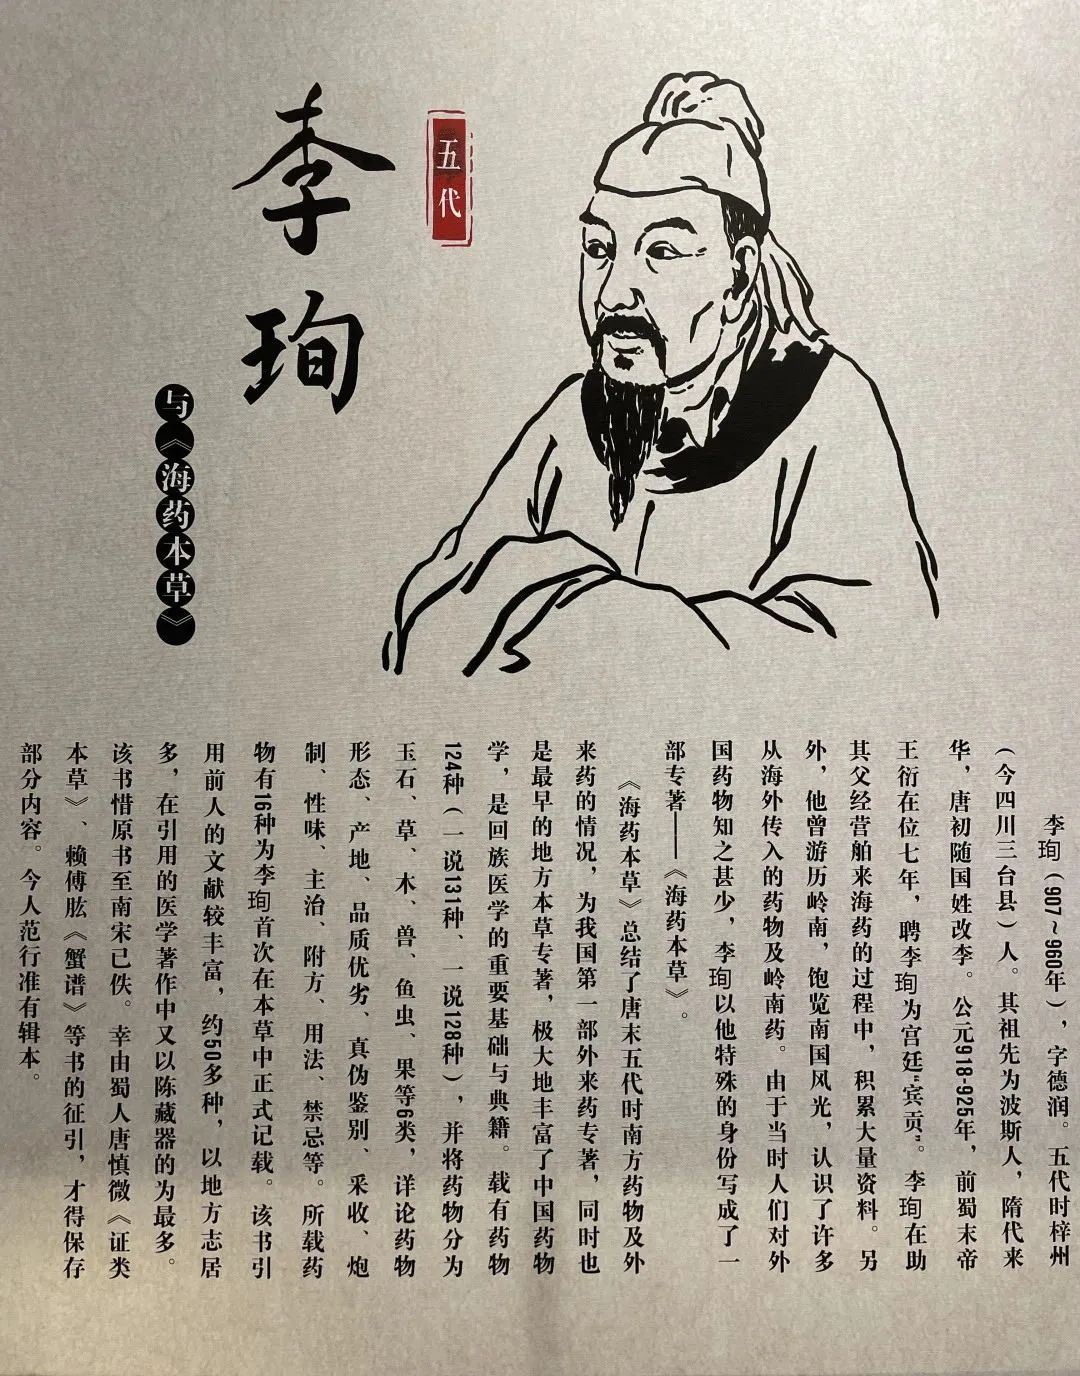 五代
李珣
与《海药本草》
李珣（907～960年），字德润。五代时梓州
（今四川三台县）人。其祖先为波斯人，隋代来
华，唐初随国姓改李。公元918-925年，前蜀末帝
王衍在位七年，聘李珣为宫廷“宾贡”。李珣在助
其父经营舶来海药的过程中，积累大量资料。另
外，他曾游历岭南，饱览南国风光，认识了许多
从海外传入的药物及岭南药。由于当时人们对外
国药物知之甚少，李珣以他特殊的身份写成了一
部专著——《海药本草》。
《海药本草》总结了唐末五代时南方药物及外
来药的情况，为我国第一部外来药专著，同时也
是最早的地方本草专著，极大地丰富了中国药物
学，是回族医学的重要基础与典籍。载有药物
124种（一说131种、一说128种），并将药物分为
玉石、草、木、兽、鱼虫、果等6类，详论药物
形态、产地、品质优劣、真伪鉴别、采收、炮
制、性味、主治、附方、用法、禁忌等。所载药
物有16种为李珣首次在本草中正式记载。该书引
用前人的文献较丰富，约50多种，以地方志居
多，在引用的医学著作中又以陈藏器的为最多。
该书惜原书至南宋已佚。幸由蜀人唐慎微《证类
本草》、赖傅肱《蟹谱》等书的征引，才得保存
部分内容。今人范行准有辑本。